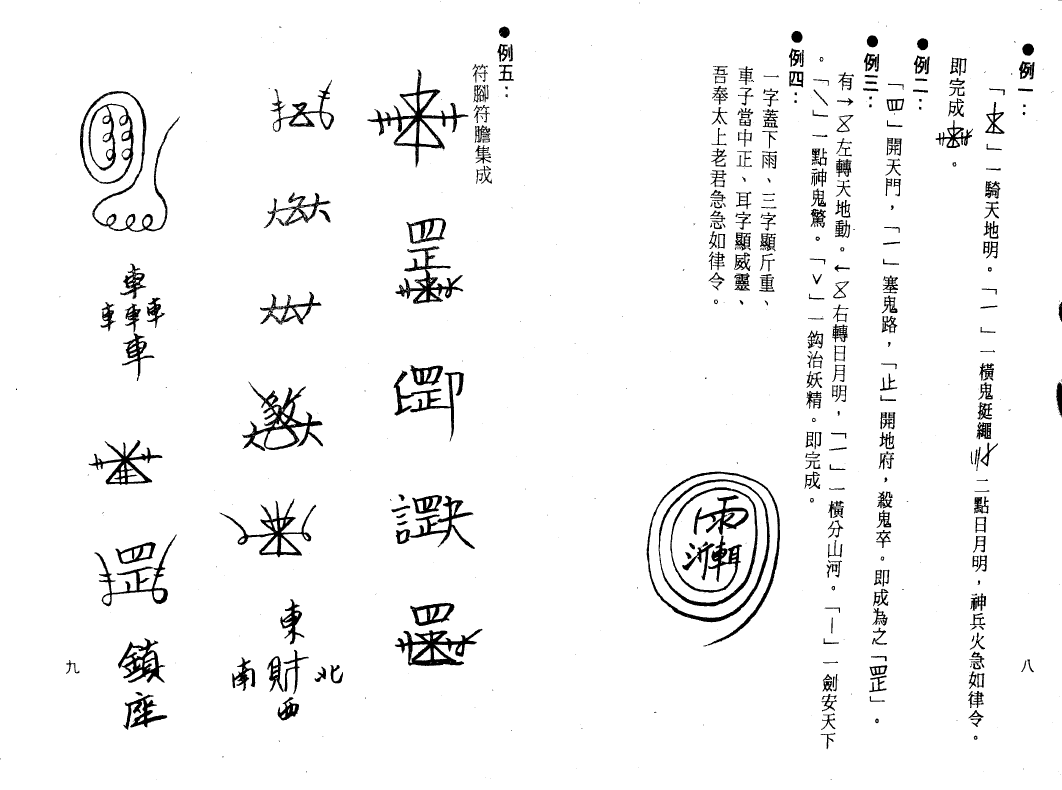 ●例一：
「 」一騎天地明。「一」一橫鬼挺繩 二點日月明，神兵火急如律令。
即完成 。
●例二：
「四」開天門，「一」塞鬼路，「止」開地府，殺鬼卒。即成為之「罡」。
●例三：
有→ 左轉天地動。← 右轉日月明，「一」一橫分山河。「｜」一劍安天下
。「＼」一點神鬼驚。「∨」一鈎治妖精。即完成。
●例四：
一字蓋下雨、三字顯斤重、
車子當中正、耳字顯威靈、
吾奉太上老君急急如律令。
雨
八
●例五：
符腳符膽集成
罡
東
南財北
西
車
車車車
車
罡
鎮座
九